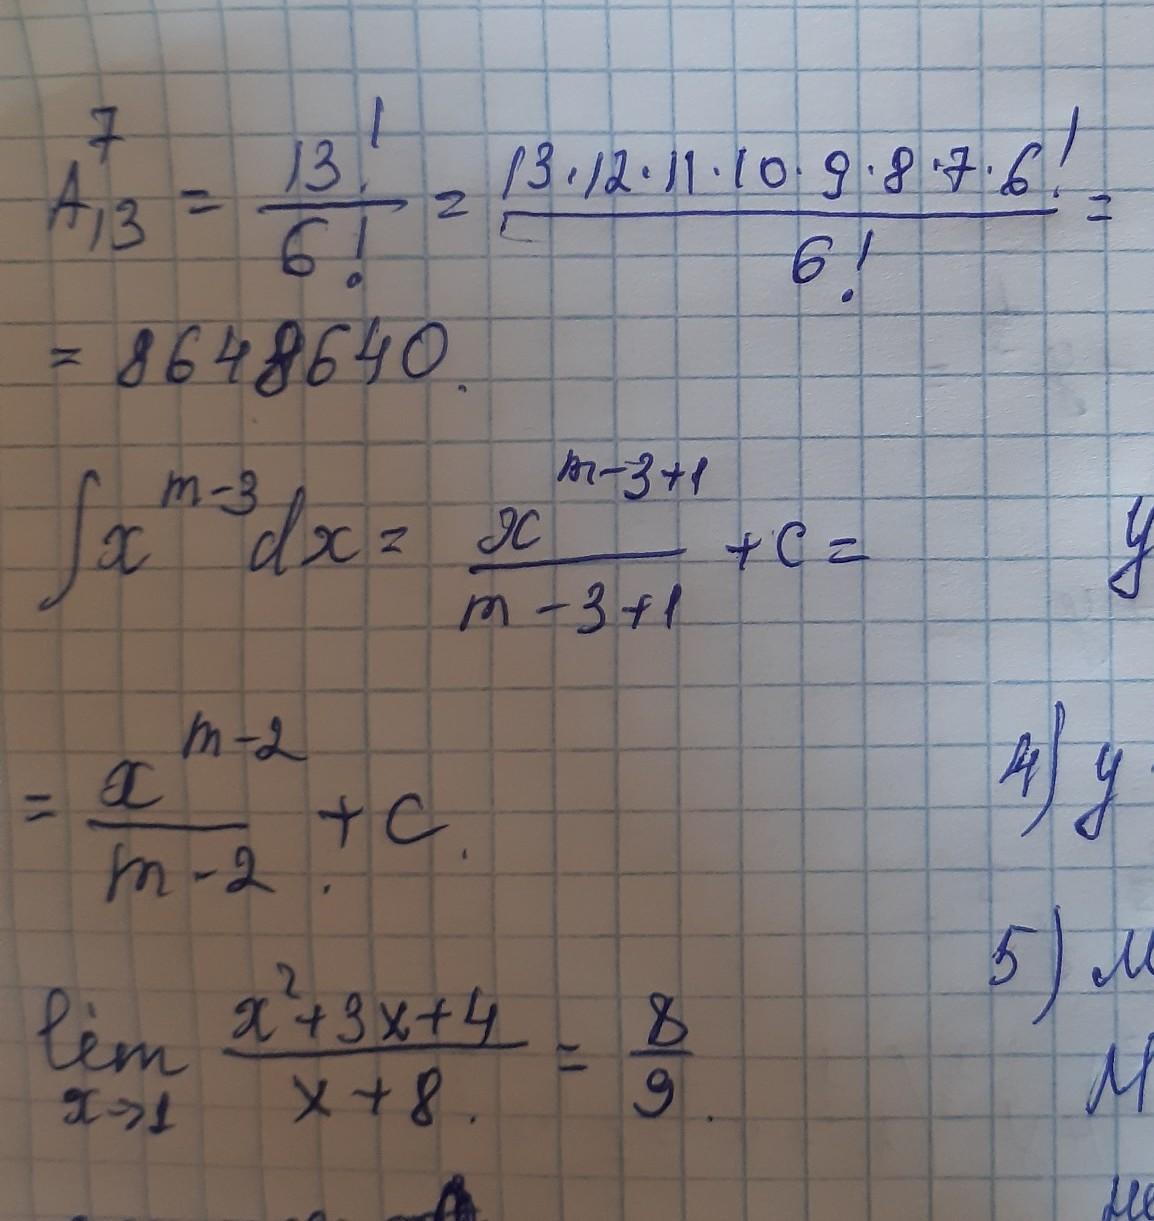 A₁₃⁷ = 13!/6! = 13·12·11·10·9·8·7·6!/6! =
= 8648640.
∫x^(m-3)dx = x^(m-3+1)/(m-3+1) + C =
y
= x^(m-2)/(m-2) + C.
4) y
5) м
lim x→1 (x²+3x+4)/(x+8) = 8/9.
М